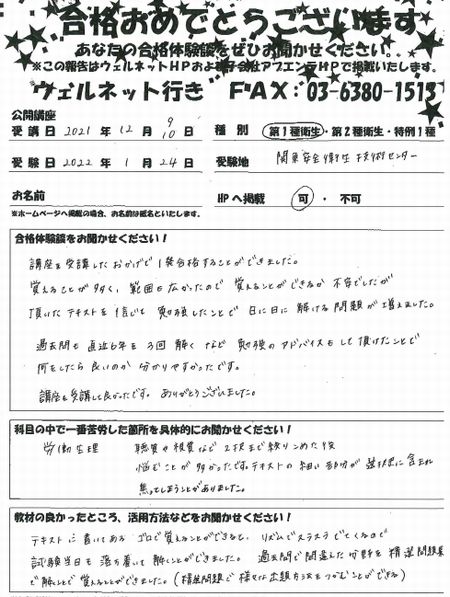 合格おめでとうございます
あなたの合格体験談をぜひお聞かせください。
※この報告はウェルネットHPおよび子会社アフエンラHPで掲載いたします。
ウェルネット行き FAX:03-6380-1513
公開講座
受講日 2021年 12月 9 10日 種別 第1種衛生・第2種衛生・特例1種
受験日 2022年 1月 24日 受験地 関東安全衛生技術センター
お名前 HPへ掲載 可・不可
※ホームページへ掲載の場合、お名前は匿名といたします。
合格体験談をお聞かせください!
講座を受講したおかげで1発合格することができました。
覚えることが多く、範囲も広かったので覚えることができるか不安でしたが
頂いたテキストを信じて勉強したことで日に日に解ける問題が増えました。
過去問も直近6年を3回解くなど勉強のアドバイスもして頂けたことで
何をしたら良いのか分かりやすかったです。
講座を受講して良かったです。ありがとうございました。
科目の中で一番苦労した箇所を具体的にお聞かせください!
労働生理 聴覚や視覚など2択まで絞りこめた後
悩むことが多かったです。テキストの細い部分が選択肢に含まれ
焦ってしまうことがありました。
教材の良かったところ、活用方法などをお聞かせください!
テキストに書いてあるゴロで覚えることができると、リズムでスラスラでてくるので
試験当日も落ち着いて解くことができました。過去問で間違えた分野を精選問題集
で解くことで覚えることができました。(精選問題で様々な出題方法をつかむことができる)